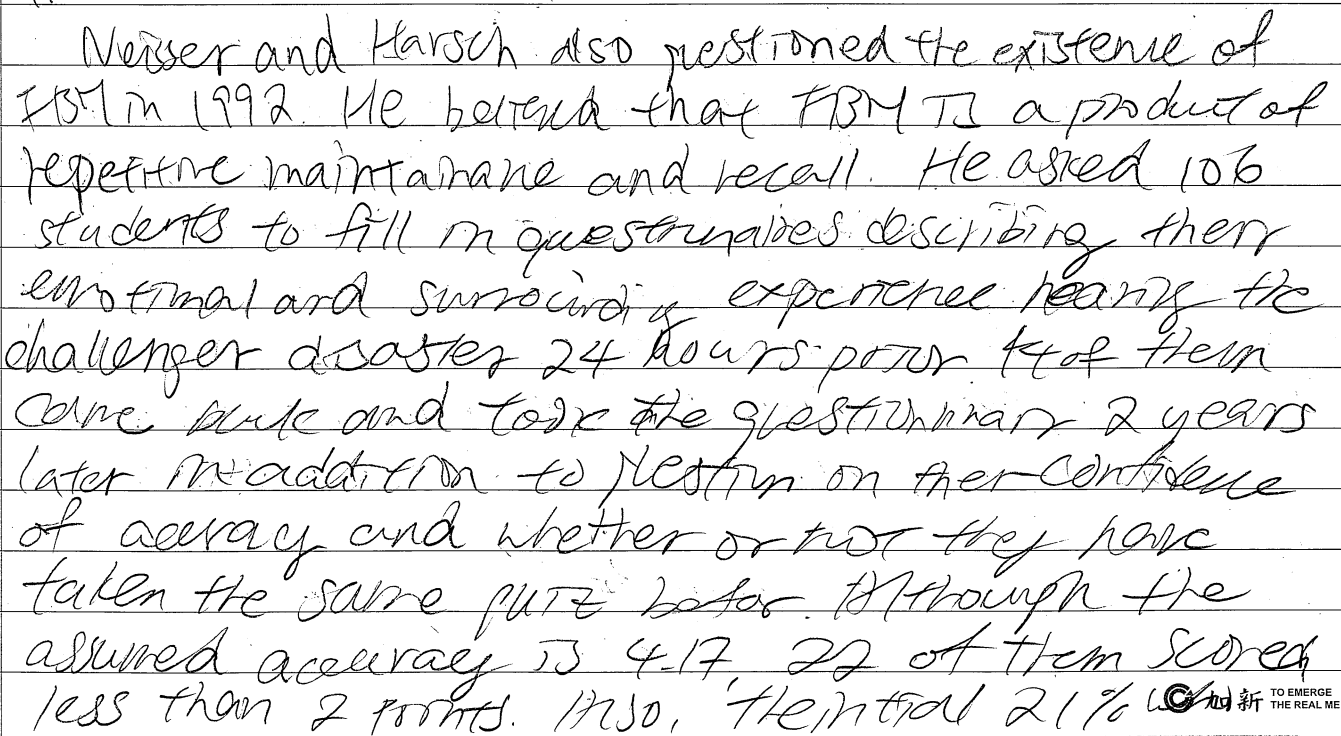 Neisser and Harsch also questioned the existence of
FBM in 1992. He believed that FBM is a product of
repetitive maintainane and recall. He asked 106
students to fill in questionnaires describing their
emotional and surrounding experience hearing the
challenger disaster 24 hours prior 44 of them
came back and took the questionnary 2 years
later in addition to question on their confidence
of accuracy and whether or not they have
taken the same quiz befor. Although the
assumed accuracy is 4.17, 22 of them scored
less than 2 points. Also, the initial 21%
加新 TO EMERGE
THE REAL ME